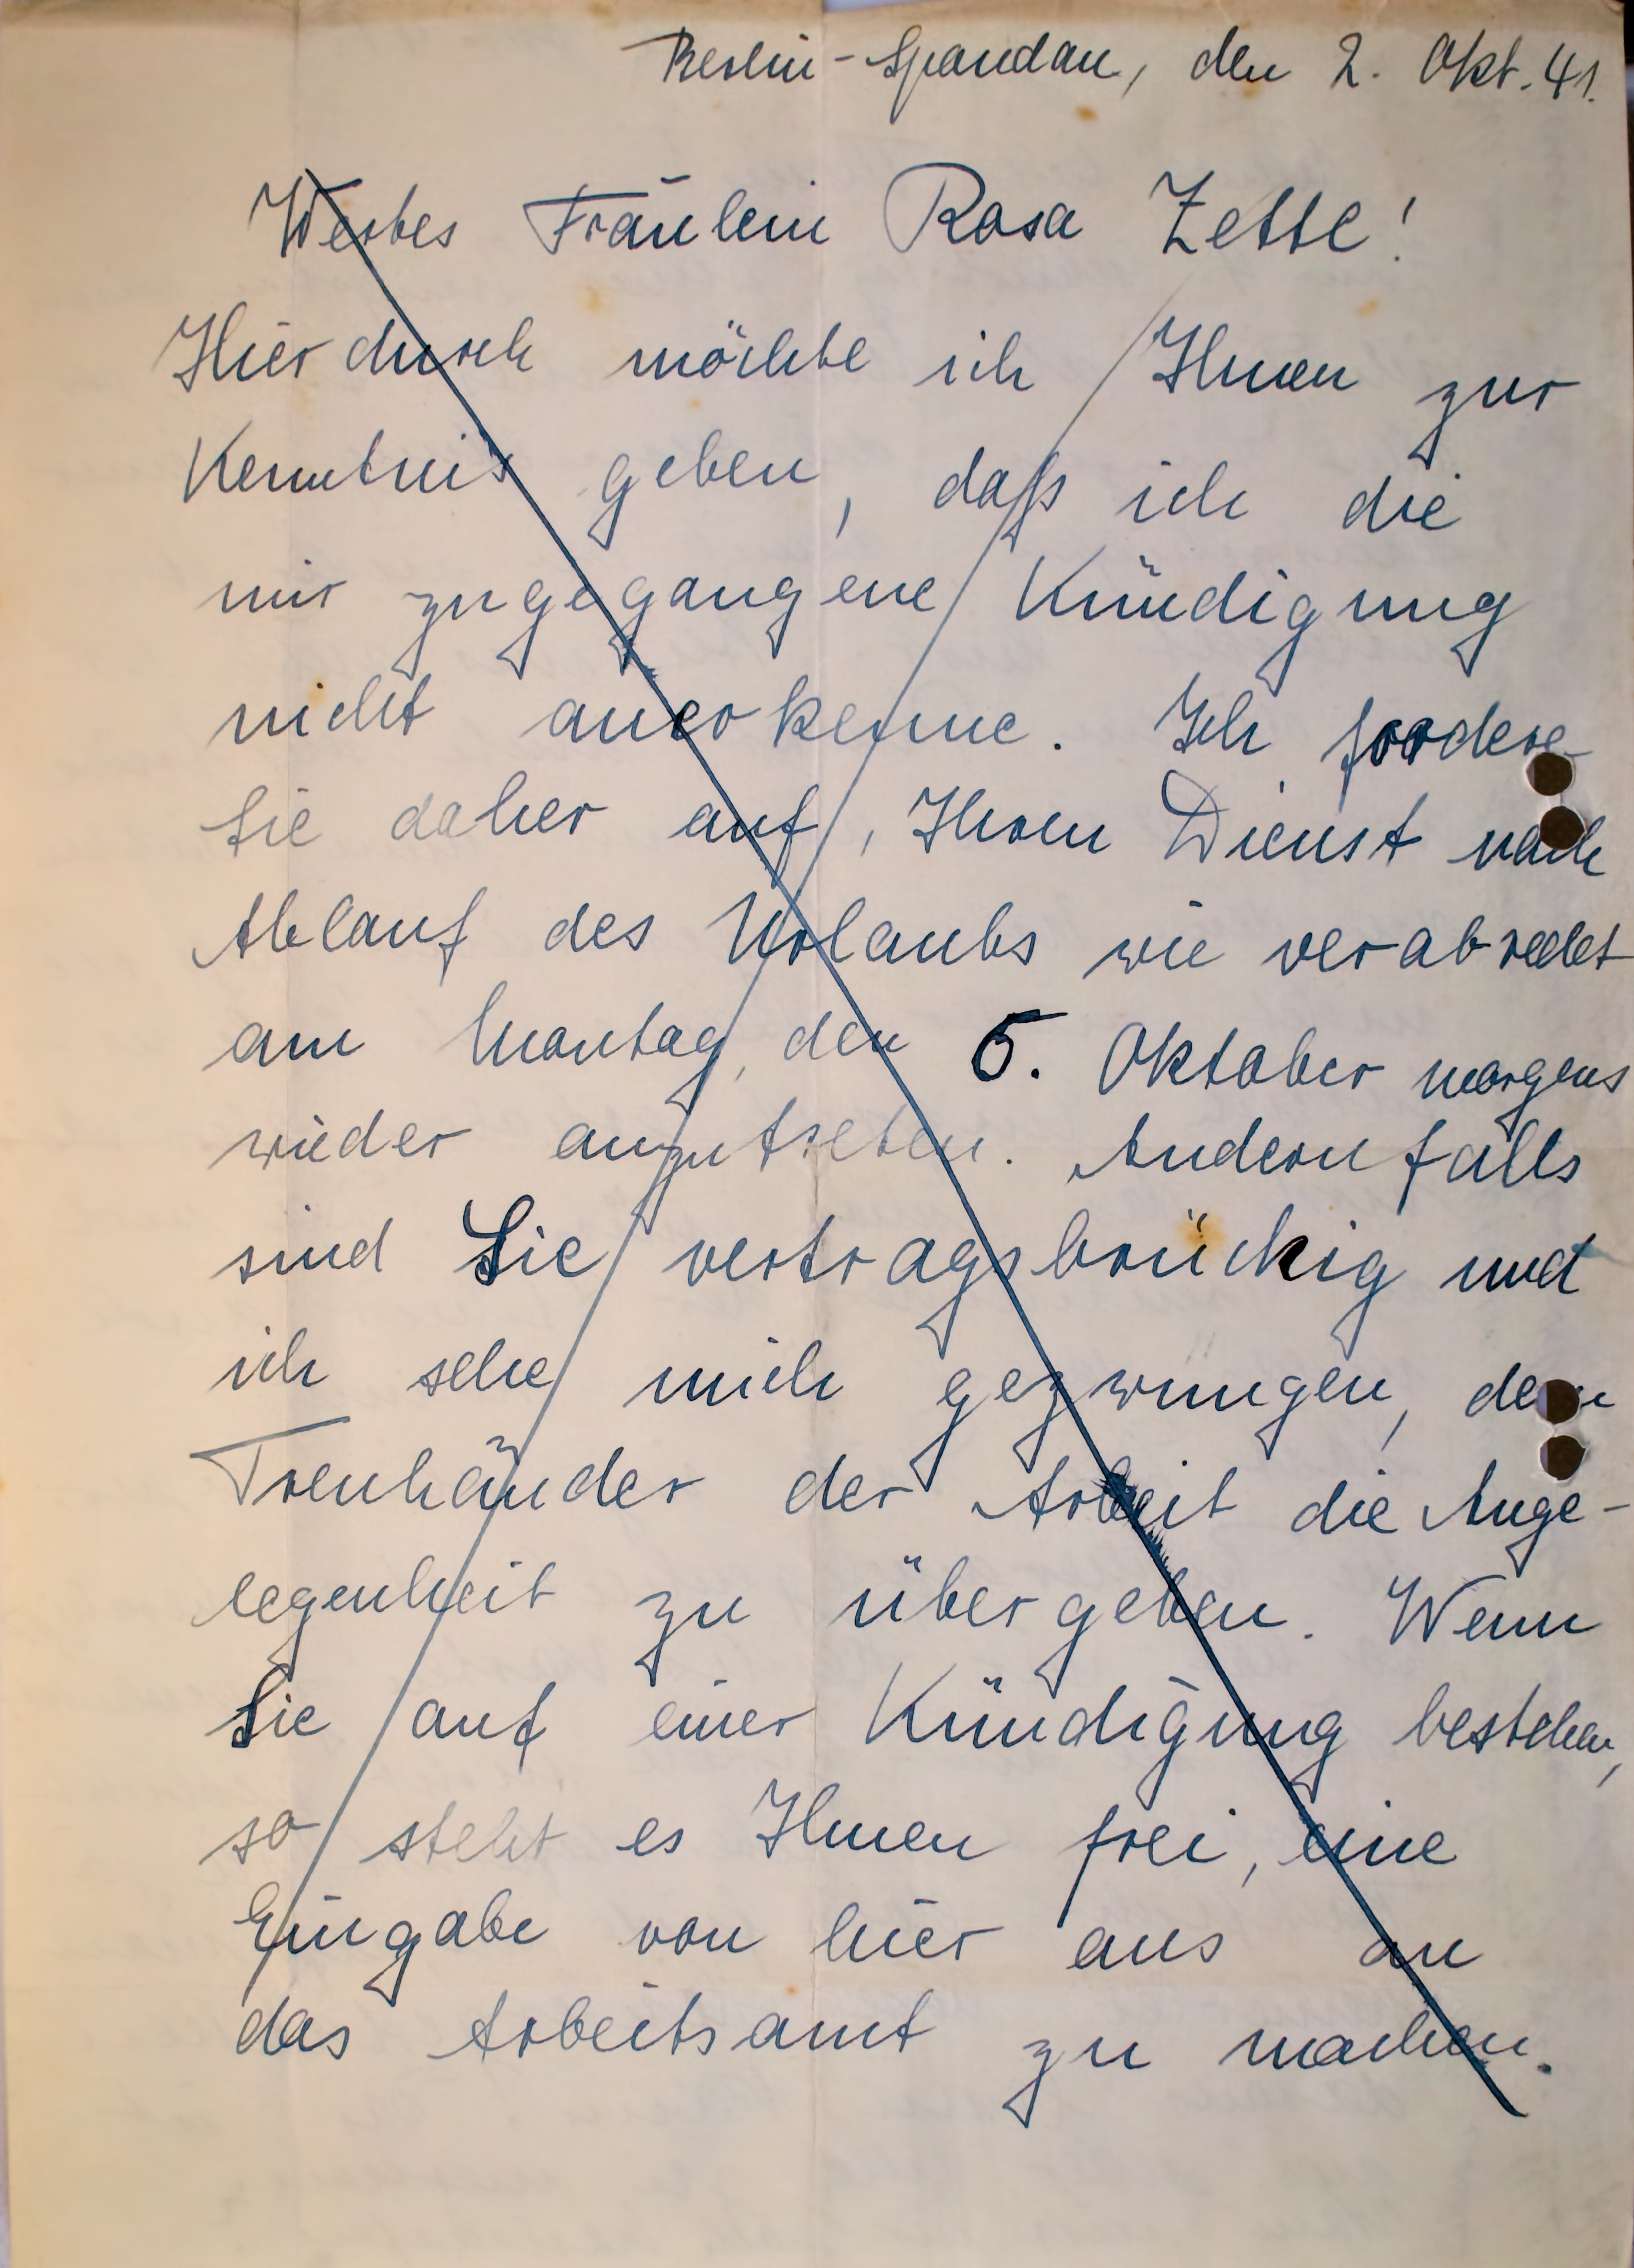 Berlin-Spandau, den 2. Okt. 41.
Wertes Fräulein Rosa Zettl!
Hierdurch möchte ich Ihnen zur
Kenntnis geben, daß ich die
mir zugegangene Kündigung
nicht anerkenne. Ich fordere
Sie daher auf, Ihren Dienst nach
Ablauf des Urlaubs wie verabredet
am Montag, den 6. Oktober morgens
wieder anzutreten. Andernfalls
sind Sie vertragsbrückig und
ich sehe mich gezwungen, dem
Treuhänder der Arbeit die Ange-
legenheit zu übergeben. Wenn
Sie auf einer Kündigung bestehen,
so steht es Ihnen frei, eine
Eingabe von hier aus an
das Arbeitsamt zu machen.